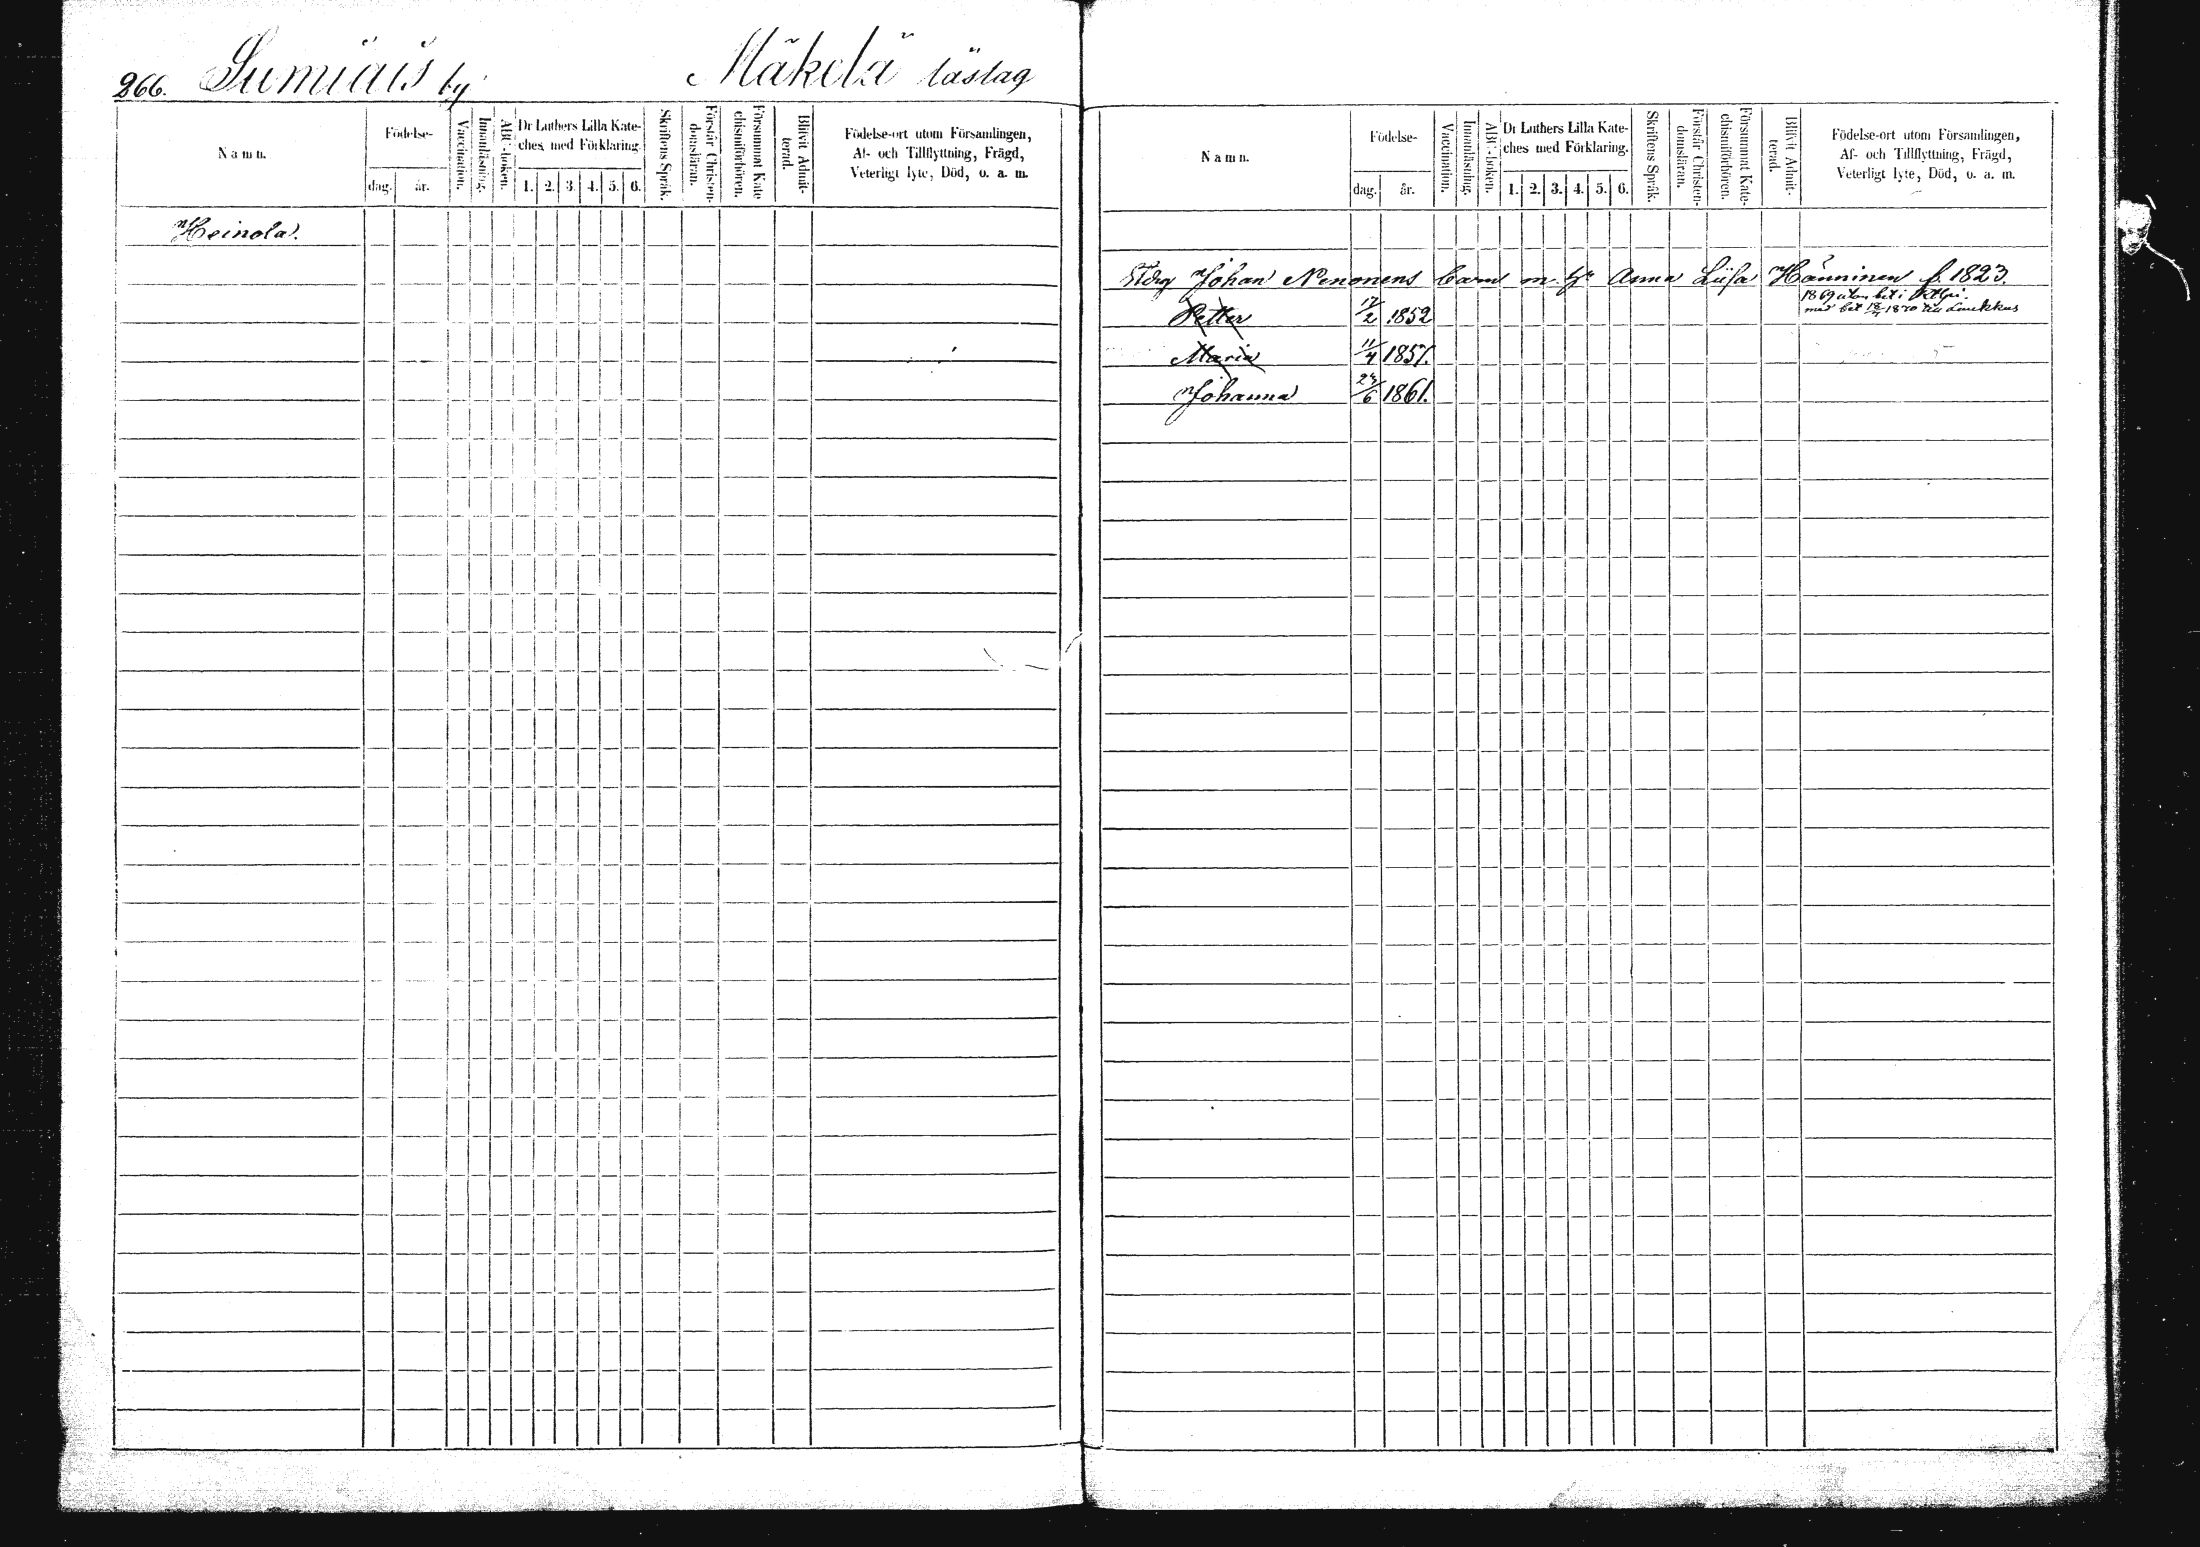 266. Sumiais by Mäkelä läslag
Namn.
Födelse-
dag. år.
Vaccination.
Innanläsning.
ABC-boken.
Dr Luthers Lilla Kate-
ches med Förklaring.
1. 2. 3. 4. 5. 6.
Skriftens Språk.
Förstår Christen-
domsläran.
Försummat Kate
chismiförhören.
Blifvit Admit-
terad.
Födelse-ort utom Församlingen,
Af- och Tillflyttning, Frägd,
Veterligt lyte, Död, o. a. m.
Heinola.
Namn.
Födelse-
dag. år.
Vaccination.
Innanläsning.
ABC-boken.
Dr Luthers Lilla Kate-
ches med Förklaring.
1. 2. 3. 4. 5. 6.
Skriftens Språk.
Förstår Christen-
domsläran.
Försummat Kate-
chismiförhören.
Blifvit Admit-
terad.
Födelse-ort utom Församlingen,
Af- och Tillflyttning, Frägd,
Veterligt lyte, Död, o. a. m.
Johan Nenonens barn m. Anna Liisa Hänninen f. 1823.
Petter 17/2 1852 1869 utan bet i
med bet 1870 till
Maria 11/4 1857.
Johanna 24/6 1861.